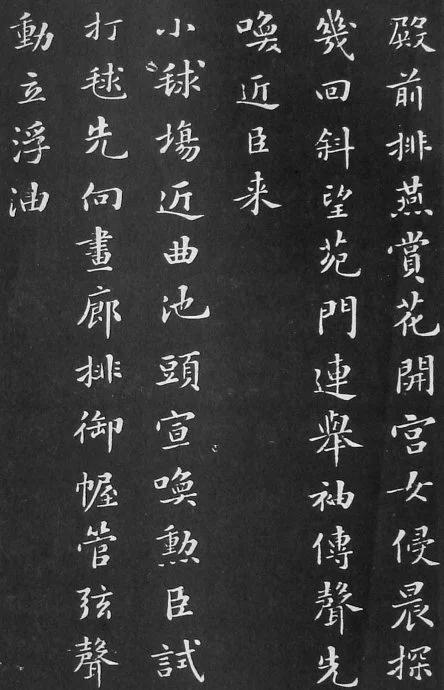 殿前排燕賞花開宫女侵晨探
幾回斜望苑門連舉袖傳聲先
喚近臣来
小毬塲近曲池頭宣喚勲臣試
打毬先向畫廊排御幄管弦聲
動立浮油